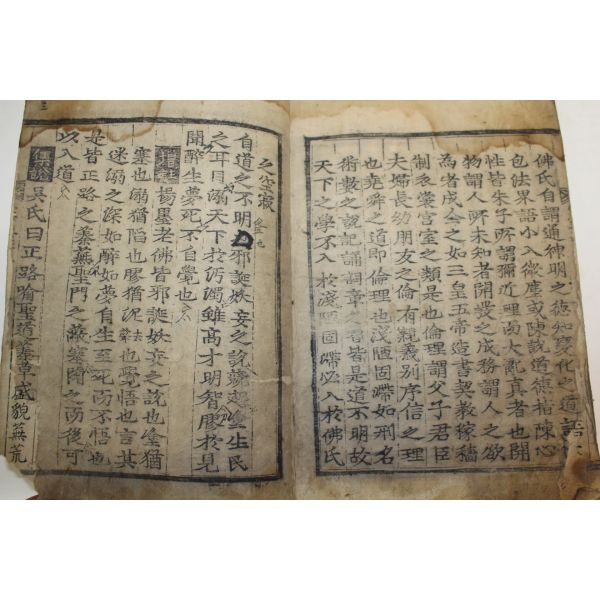 佛氏自謂通神明之德知變化之道語大
包法界語小入微塵或陳說道德指陳心
性皆朱子所謂彌近理而大亂真者也開
物謂人所未知者開發之成務謂人之欲
為者成全之如三皇五帝造書契敎稼穡
制衣裳宮室之類是也倫理謂父子君臣
夫婦長幼朋友之倫有親義別序信之理
也堯舜之道即倫理也淺陋固滯如刑名
術數之說記誦詞章之習皆是道不明故
天下之學不入於淺陋固滯必入於佛氏
之空寂
自道之不明也邪誕妖妄之說競起塗生民
之耳目溺天下於汚濁雖高才明智膠於見
聞醉生夢死不自覺也
增註 楊墨老佛皆邪誕妖妄之說也塗猶
塞也溺猶陷也膠猶泥去聲也覺悟也言其
迷溺之深如醉如夢自生至死而不悟也
是皆正路之蓁蕪聖門之蔽塞闢之而後可
以入道
集說 吳氏曰正路喩聖道蓁草盛貌蕪荒